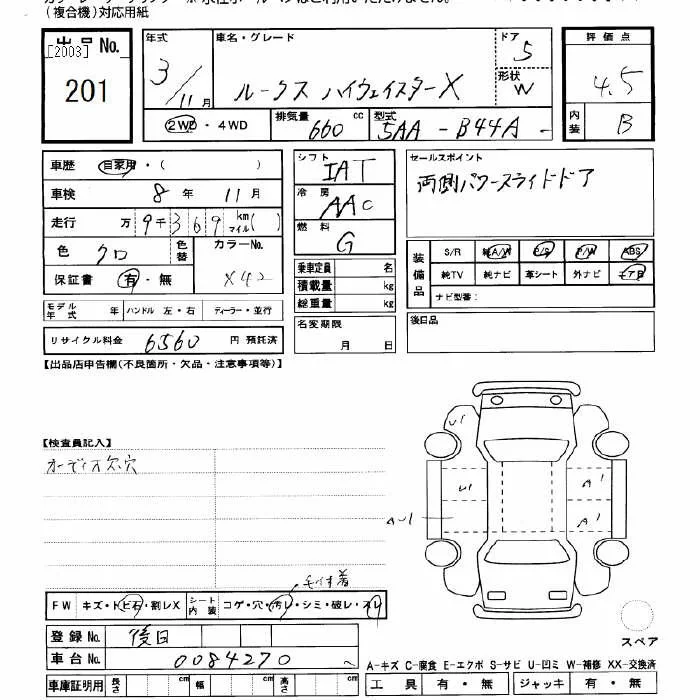 (複合機)対応用紙
出品No.
[2003]
201
年式
3/11月
車名・グレード
ルークス ハイウェイスターX
ドア
5
形状
W
評価点
4.5
2WD・4WD
排気量 660 cc
型式 5AA-B44A-
内装 B
車歴 自家用・( )
車検 8年 11月
走行 万 9千369 km マイル( )
色 クロ 色替 カラーNo.
保証書 有・無 X42
モデル年式 年 ハンドル 左・右 ディーラー・並行
リサイクル料金 6560 円 預託済
シフト IAT
冷房 AAC
燃料 G
乗車定員 名
積載量 kg
総重量 kg
名変期限
月 日
セールスポイント
両側パワースライドドア
装備品
S/R 純A/W P/S P/W ABS
純TV 純ナビ 革シート 外ナビ エアB
ナビ型番:
後日品
【出品店申告欄(不良箇所・欠品・注意事項等)】
【検査員記入】
オーディオ欠穴
U1
U1
A1
AU1
A1
FW キズ・トビ石・割レX シート内装 コゲ・穴・汚レ・シミ・破レ・スレ
登録No. 後日
車台No. 0084270
車庫証明用 長さ cm 幅 cm 高さ cm
スペア
A-キズ C-腐食 E-エクボ S-サビ U-凹ミ W-補修 XX-交換済
工具 有・無 ジャッキ 有・無